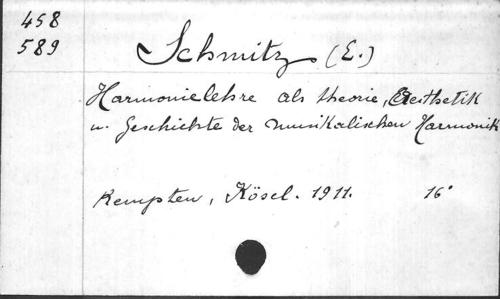 458
589
Schmitz (E.)
Harmonielehre als theorie, Aesthetik
u. Geschichte der musikalischen Harmonik
Kempten, Kösel. 1911. 16°